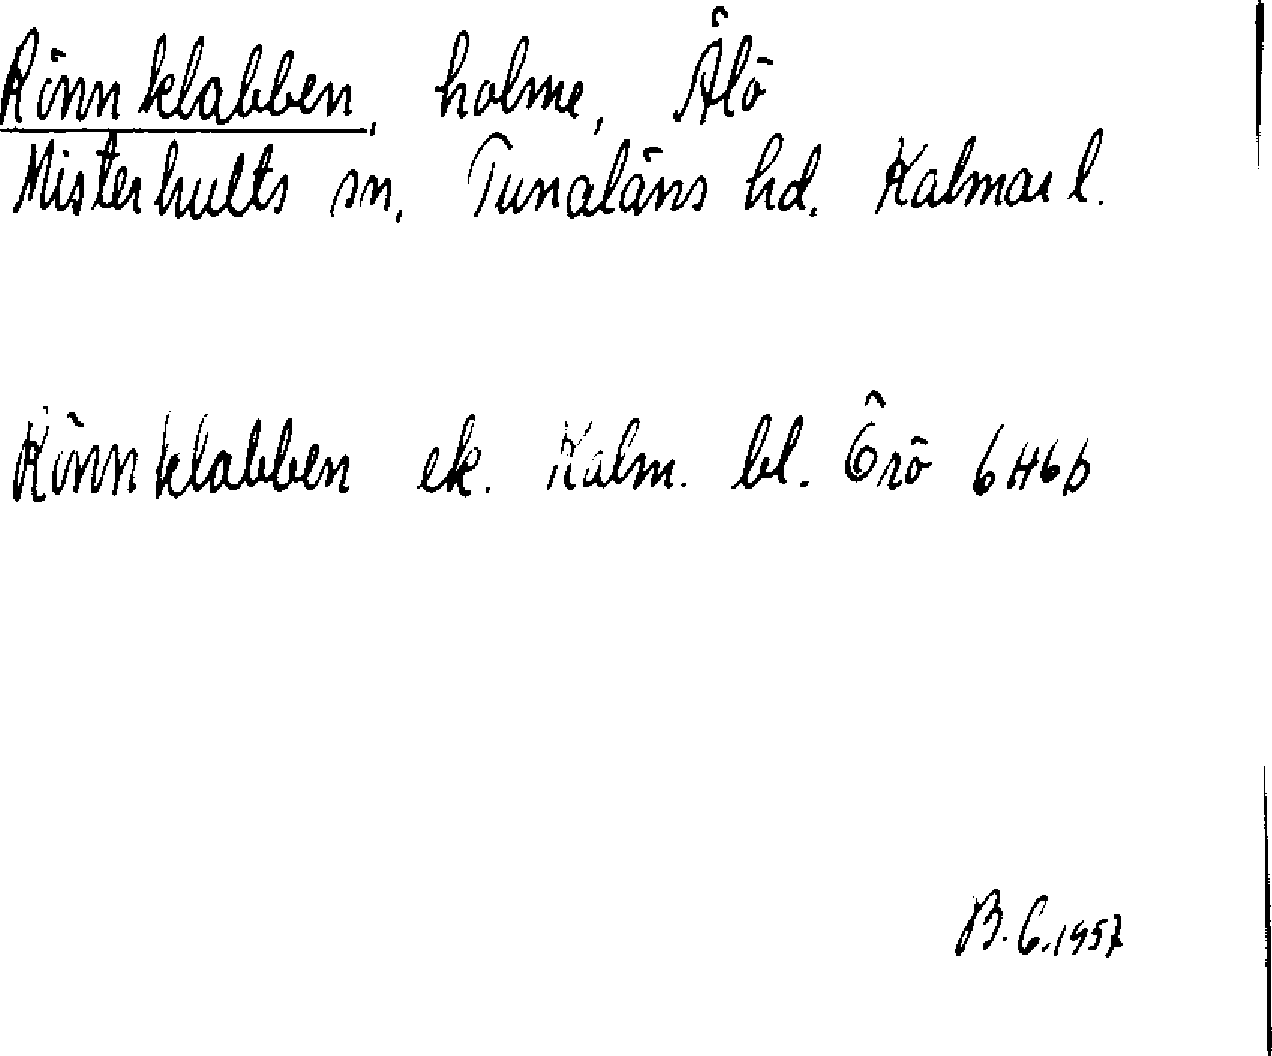 Rönnklabben, holme, Älö
Misterhults sn. Tunaläns hd. Kalmar l.
Rönnklabben ek. Kalm. bl. Örö 6H6b
B.C.1957